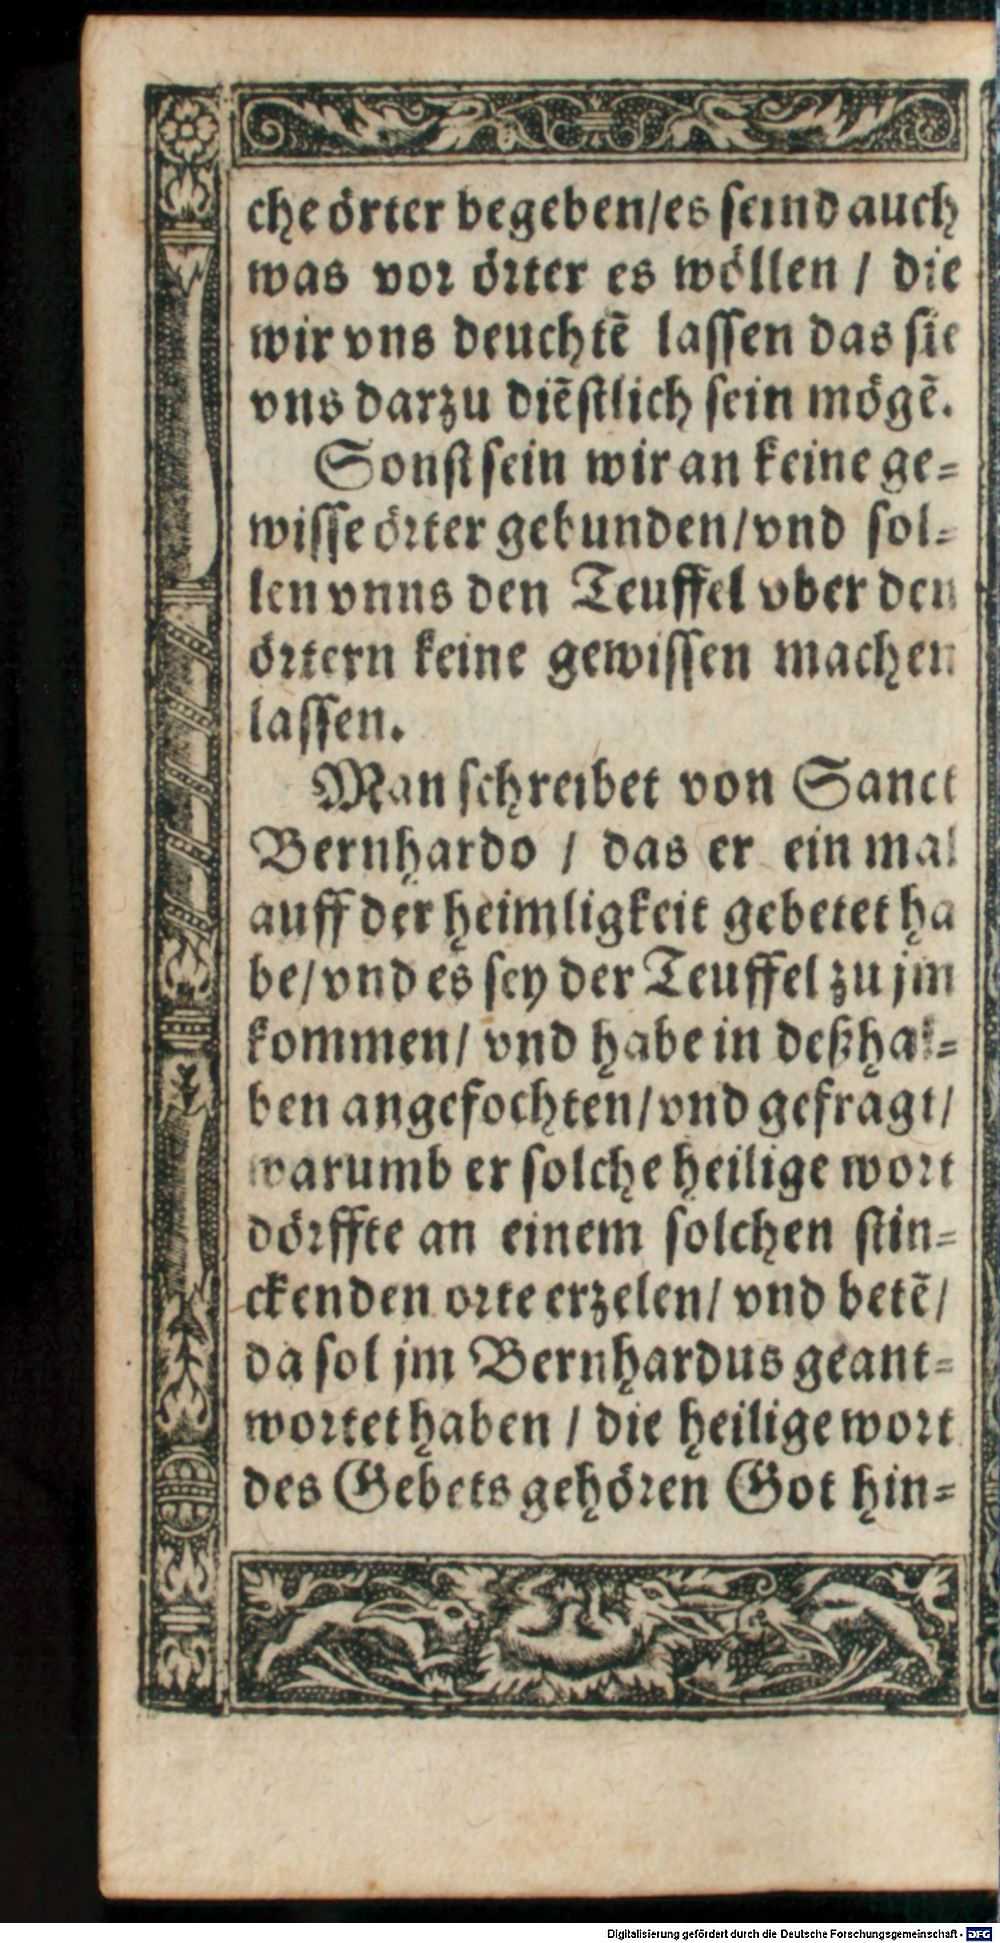 che örter begeben/es seind auch
was vor örter es wöllen / die
wir vns deuchtē lassen das sie
vns darzu diēstlich sein mögē.
Sonst sein wir an keine ge=
wisse örter gebunden/vnd sol=
len vnns den Teuffel vber den
örtern keine gewissen machen
lassen.
Man schreibet von Sanct
Bernhardo / das er ein mal
auff der heimligkeit gebetet ha
be/vnd es sey der Teuffel zu jm
kommen/ vnd habe in deßhal=
ben angefochten/vnd gefragt/
warumb er solche heilige wort
dörffte an einem solchen stin=
ckenden orte erzelen/ vnd betē/
da sol jm Bernhardus geant=
wortet haben / die heilige wort
des Gebets gehören Got hin=
Digitalisierung gefördert durch die Deutsche Forschungsgemeinschaft - DFG